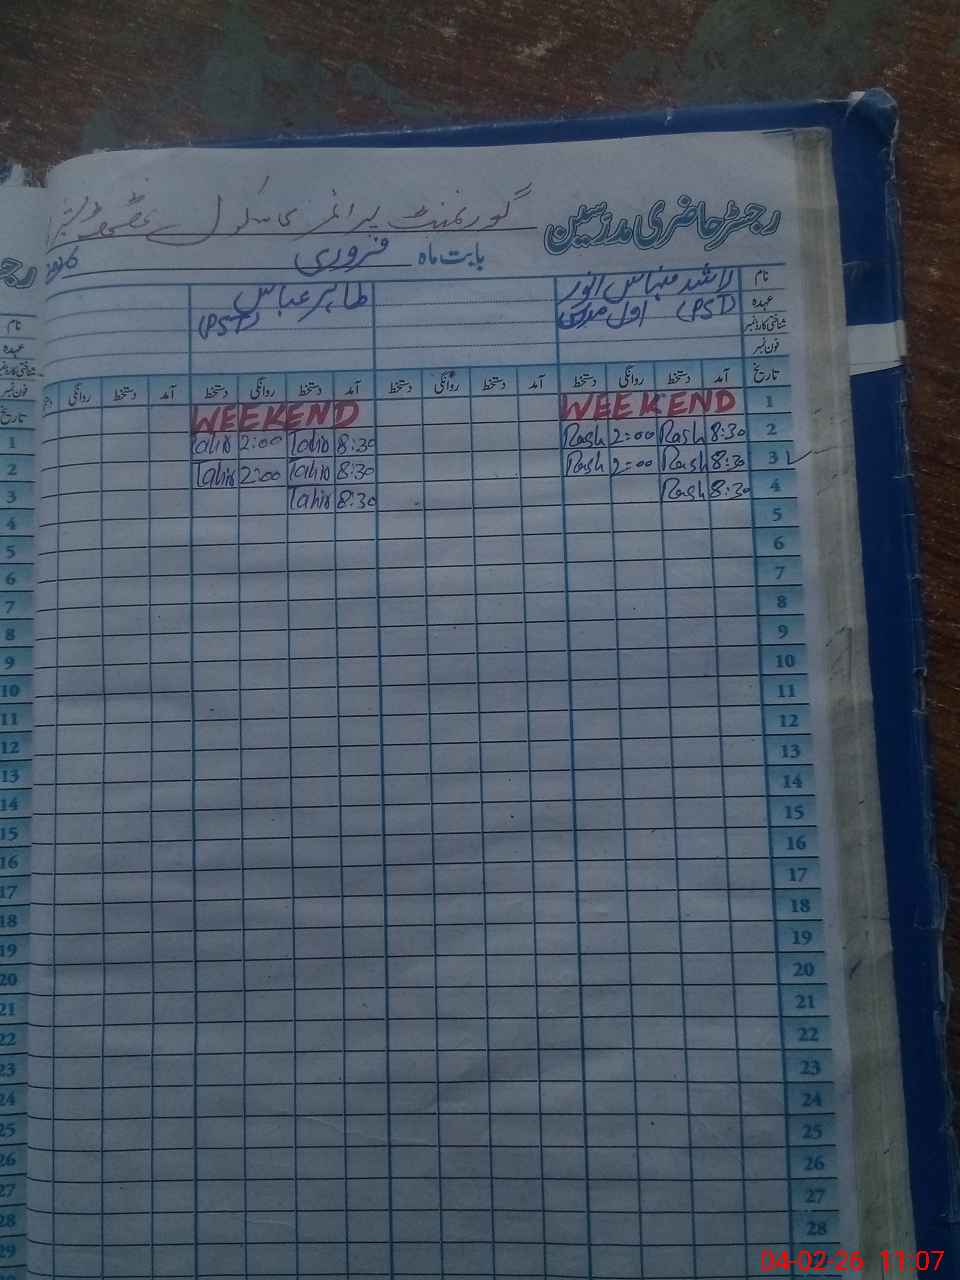 رجسٹر حاضری مدرسین گورنمنٹ پرائمری سکول
بابت ماہ فروری
نام راشد منہاس انور طاہر عباس
عہدہ (PST) اول مدرس (PST)
شناختی کارڈ نمبر
فون نمبر
تاریخ آمد دستخط روانگی دستخط آمد دستخط روانگی دستخط آمد دستخط روانگی دستخط آمد دستخط روانگی
1 WEEKEND WEEKEND
2 8:30 Rash 2:00 Rash 8:30 Tahir 2:00 Tahir
3 8:30 Rash 2:00 Rash 8:30 Tahir 2:00 Tahir
4 8:30 Rash 8:30 Tahir
5
6
7
8
9
10
11
12
13
14
15
16
17
18
19
20
21
22
23
24
25
26
27
28
نام
عہدہ
شناختی کارڈ نمبر
فون نمبر
تاریخ
1
2
3
4
5
6
7
8
9
10
11
12
13
14
15
16
17
18
19
20
21
22
23
24
25
26
27
28
29
04-02-26 11:07